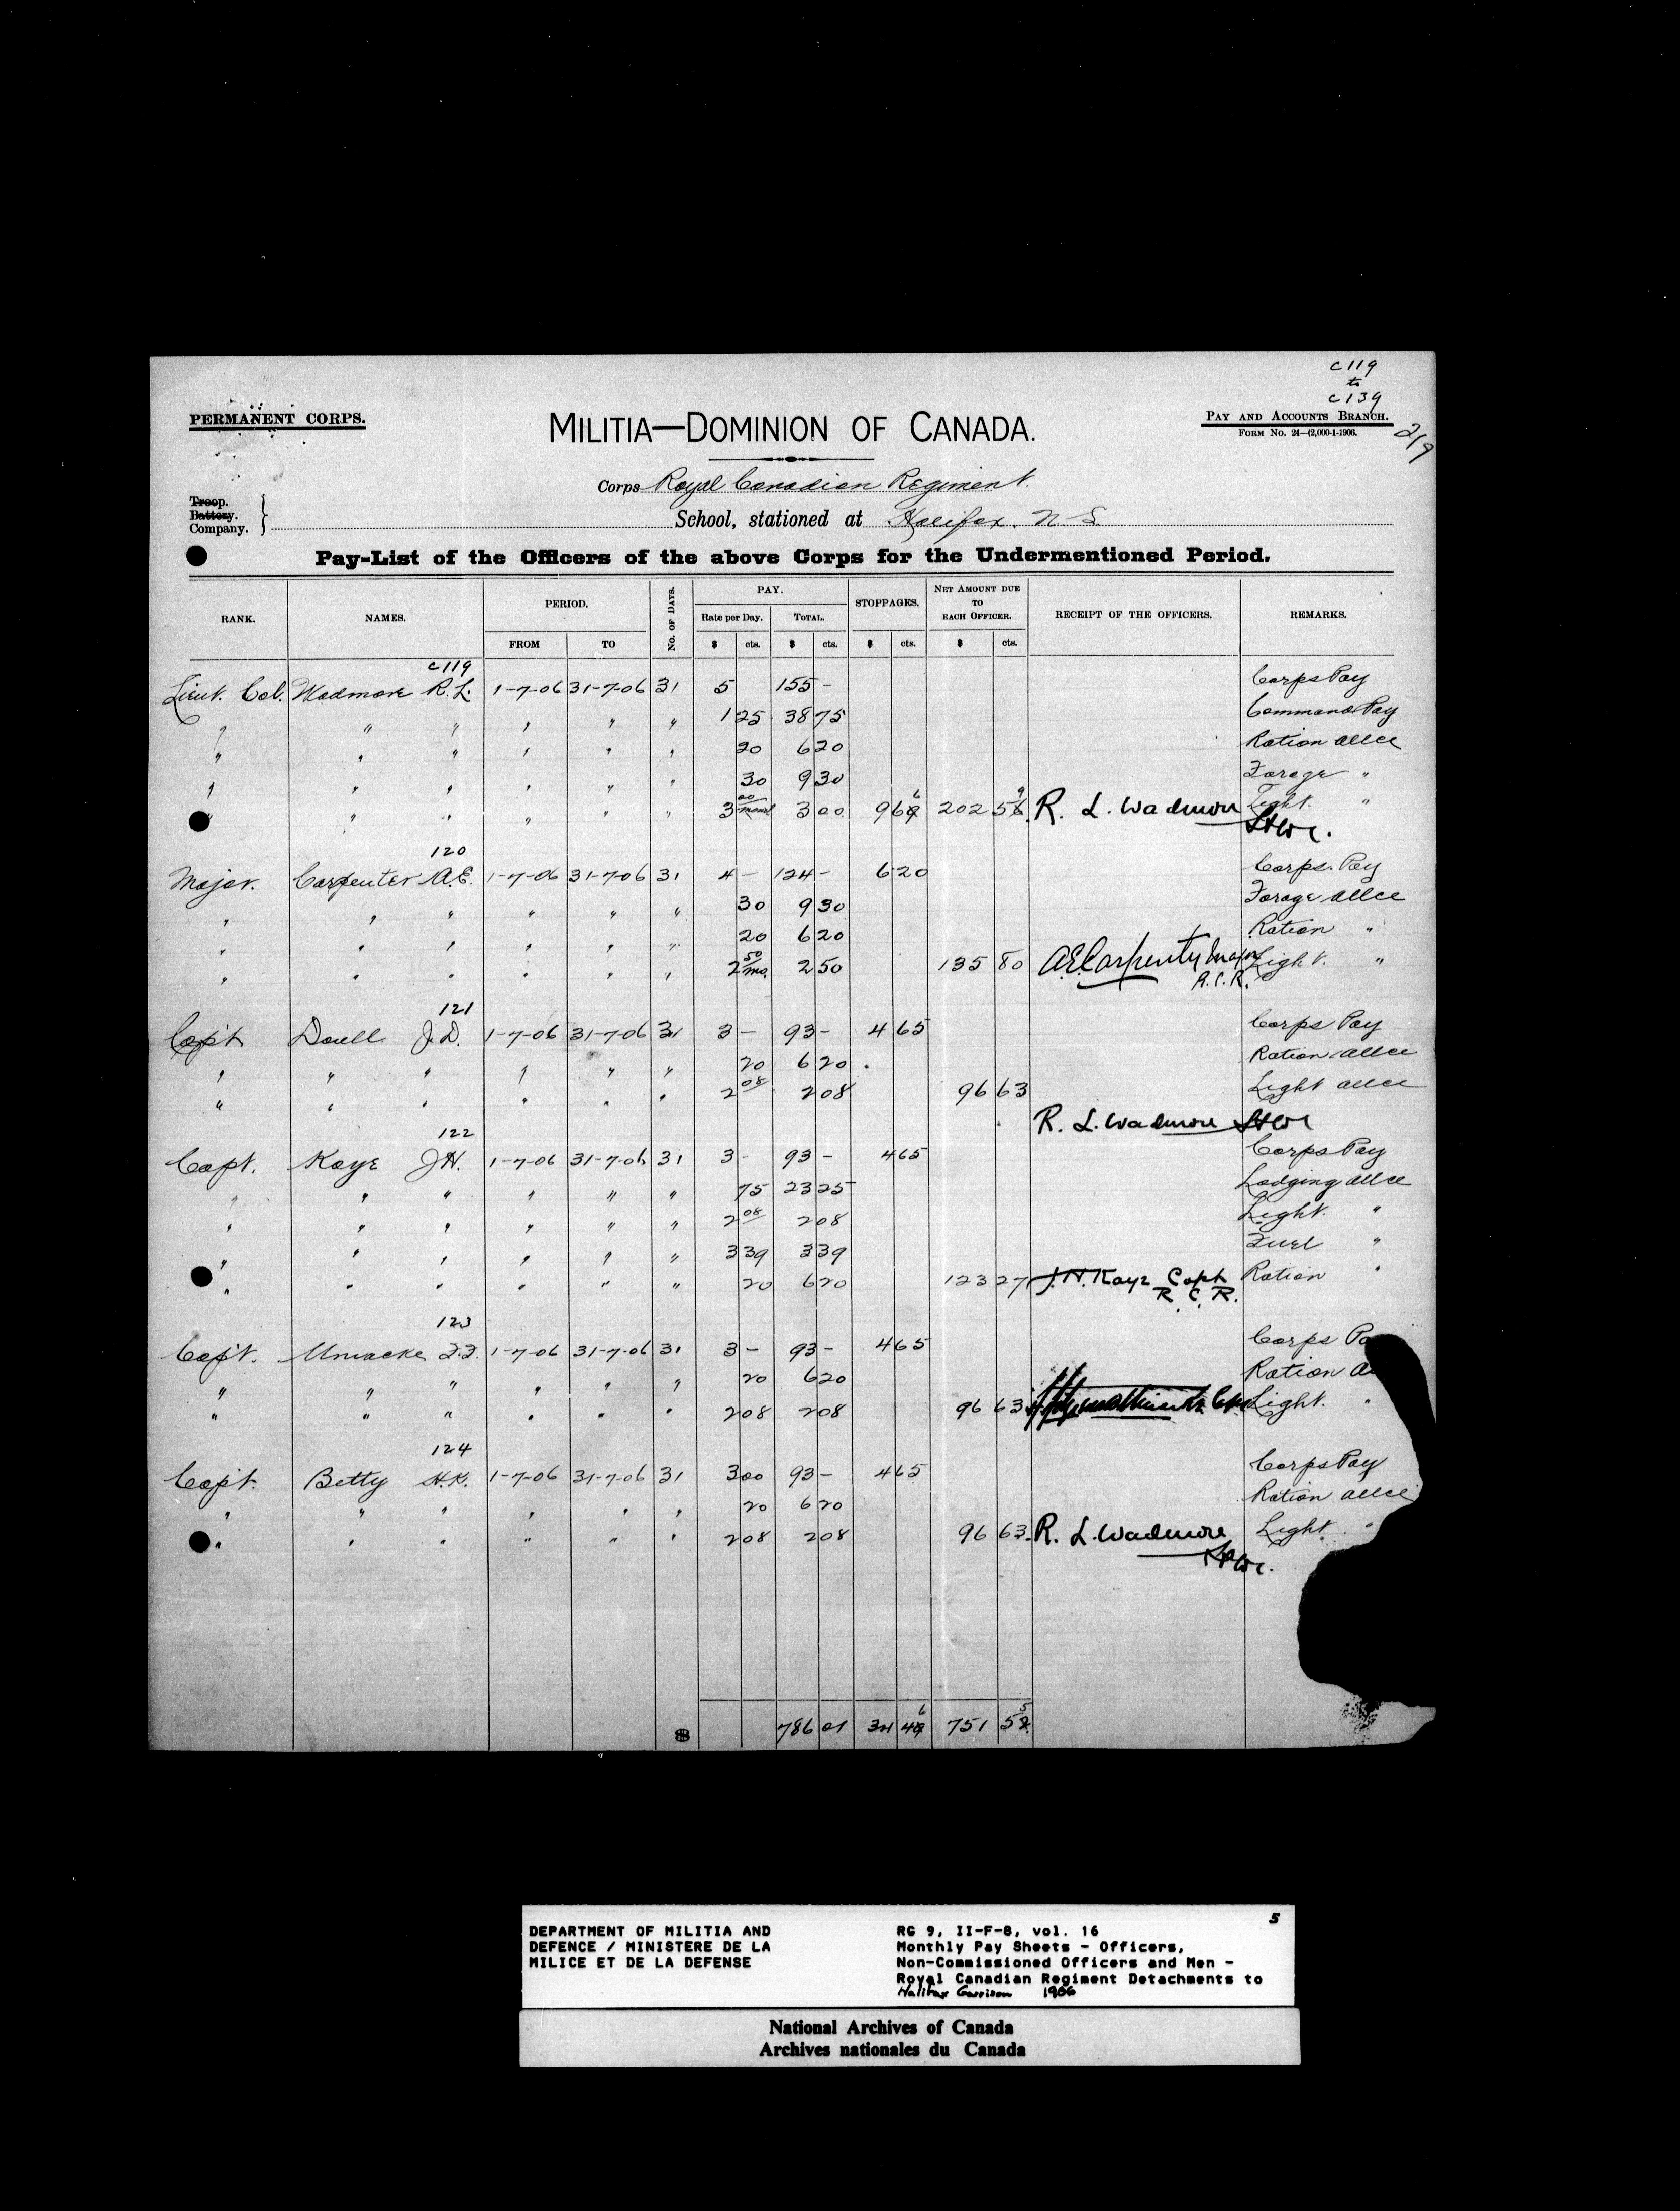 C119
to
C139
PERMANENT CORPS.
MILITIA—DOMINION OF CANADA.
PAY AND ACCOUNTS BRANCH.
FORM No. 24—(2,000-1-1906.
219
Corps Royal Canadian Regiment.
Troop.
Battery.
Company.
School, stationed at Halifax. N-S
Pay-List of the Officers of the above Corps for the Undermentioned Period.
RANK. NAMES. PERIOD. No. OF DAYS. PAY. STOPPAGES. NET AMOUNT DUE TO EACH OFFICER. RECEIPT OF THE OFFICERS. REMARKS.
FROM TO Rate per Day. TOTAL.
$ cts. $ cts. $ cts. $ cts.
C119
Lieut. Col. Wadmore R.L. 1-7-06 31-7-06 31 5 155 - Corps Pay
" " " " " " 1 25 38 75 Command Pay
" " " " " " 20 6 20 Ration allce
" " " " " " 30 9 30 Forage "
" " " " " " 3 00/month 3 00 9 66 202 59 R. L. Wadmore Light. "
Lt Col.
120
Major. Carpenter A.E. 1-7-06 31-7-06 31 4 - 124 - 6 20 Corps. Pay
" " " " " " 30 9 30 Forage allce
" " " " " " 20 6 20 Ration "
" " " " " " 2 50/mo. 2 50 135 80 A.E. Carpenter Major Light. "
R.C.R.
121
Capt. Doull J.D. 1-7-06 31-7-06 31 3 - 93 - 4 65 Corps Pay
" " " " " " 20 6 20 Ration allce
" " " " " " 2 08 2 08 96 63 Light allce
R. L. Wadmore Lt Col
122
Capt. Kaye J.H. 1-7-06 31-7-06 31 3 - 93 - 4 65 Corps Pay
" " " " " " 75 23 25 Lodging allce
" " " " " " 2 08 2 08 Light. "
" " " " " " 3 39 3 39 Fuel "
" " " " " " 20 6 20 123 27 J.H. Kaye Capt Ration "
R. C. R.
123
Capt. Uniacke F.F. 1-7-06 31-7-06 31 3 - 93 - 4 65 Corps Pa
" " " " " " 20 6 20 Ration a
" " " " " " 2 08 2 08 96 63 Light. "
124
Capt. Betty H.K. 1-7-06 31-7-06 31 3 00 93 - 4 65 Corps Pay
" " " " " " 20 6 20 Ration allce
" " " " " " 2 08 2 08 96 63 R. L. Wadmore Light. "
Lt Col.
8 786 01 34 46 751 55
5
DEPARTMENT OF MILITIA AND
DEFENCE / MINISTERE DE LA
MILICE ET DE LA DEFENSE
RG 9, II-F-8, vol. 16
Monthly Pay Sheets - Officers,
Non-Commissioned Officers and Men -
Royal Canadian Regiment Detachments to
Halifax Garrison 1906
National Archives of Canada
Archives nationales du Canada